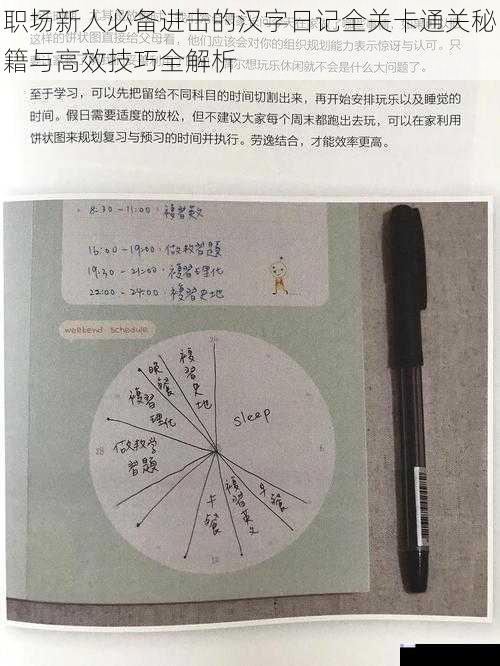 职场新人必备进击的汉字日记全关卡通关秘
籍与高效技巧全解析
这样的饼状图直接给父母看，他们应该会对你的组织规划能力表示惊讶与认可。只
尔想玩乐休闲就不会是什么大问题了。
至于学习，可以先把留给不同科目的时间切割出来，再开始安排玩乐以及睡觉的
时间。假日需要适度的放松，但不建议大家每个周末都跑出去玩，可以在家利用
饼状图来规划复习与预习的时间并执行。劳逸结合，才能效率更高。
8:30-11:00：複習英文
16:00-19:00：做教習題
19:30-21:00：複習理化
22:00-24:00：複習史地
weekend schedule
24
晚餐
複習史地
複習理化
sleep
18
做教学習題
6
早餐
複習英文
午餐
12